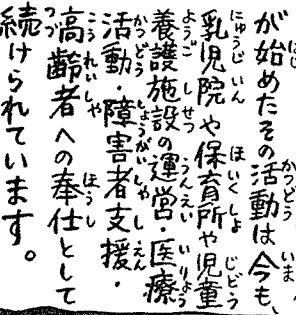 が始めたその活動は今も、
乳児院や保育所や児童
養護施設の運営・医療
活動・障害者支援・
高齢者への奉仕として
続けられています。